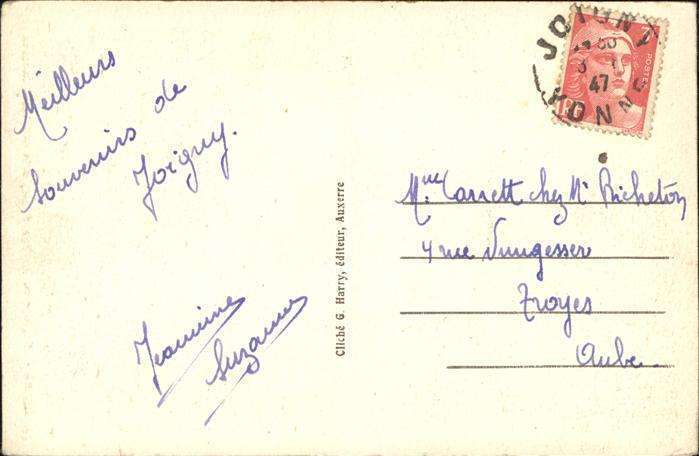 Meilleurs
souvenirs de
Joigny.
Jeannine
Suzanne
Cliché G. Harry, éditeur, Auxerre
JOIGNY
47
YONNE
POSTES
Mme Carrett chez Mr Richeton
4 rue Nungesser
Troyes
Aube.